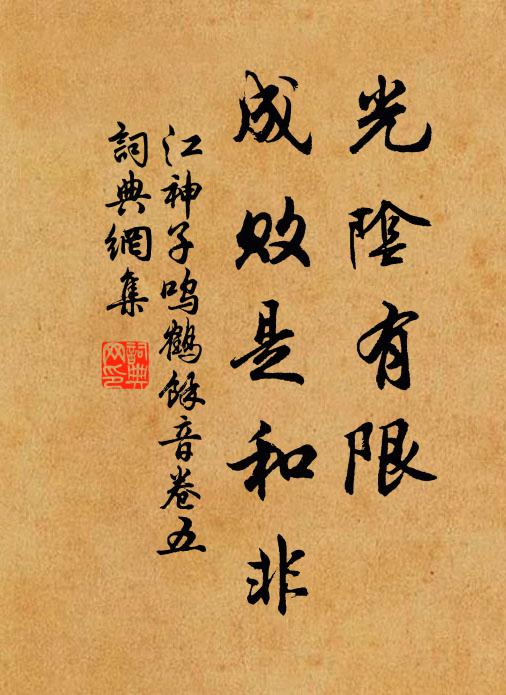 光陰有限
成敗是和非
江神子鳴鶴餘音卷五
詞典網集
詞典网印